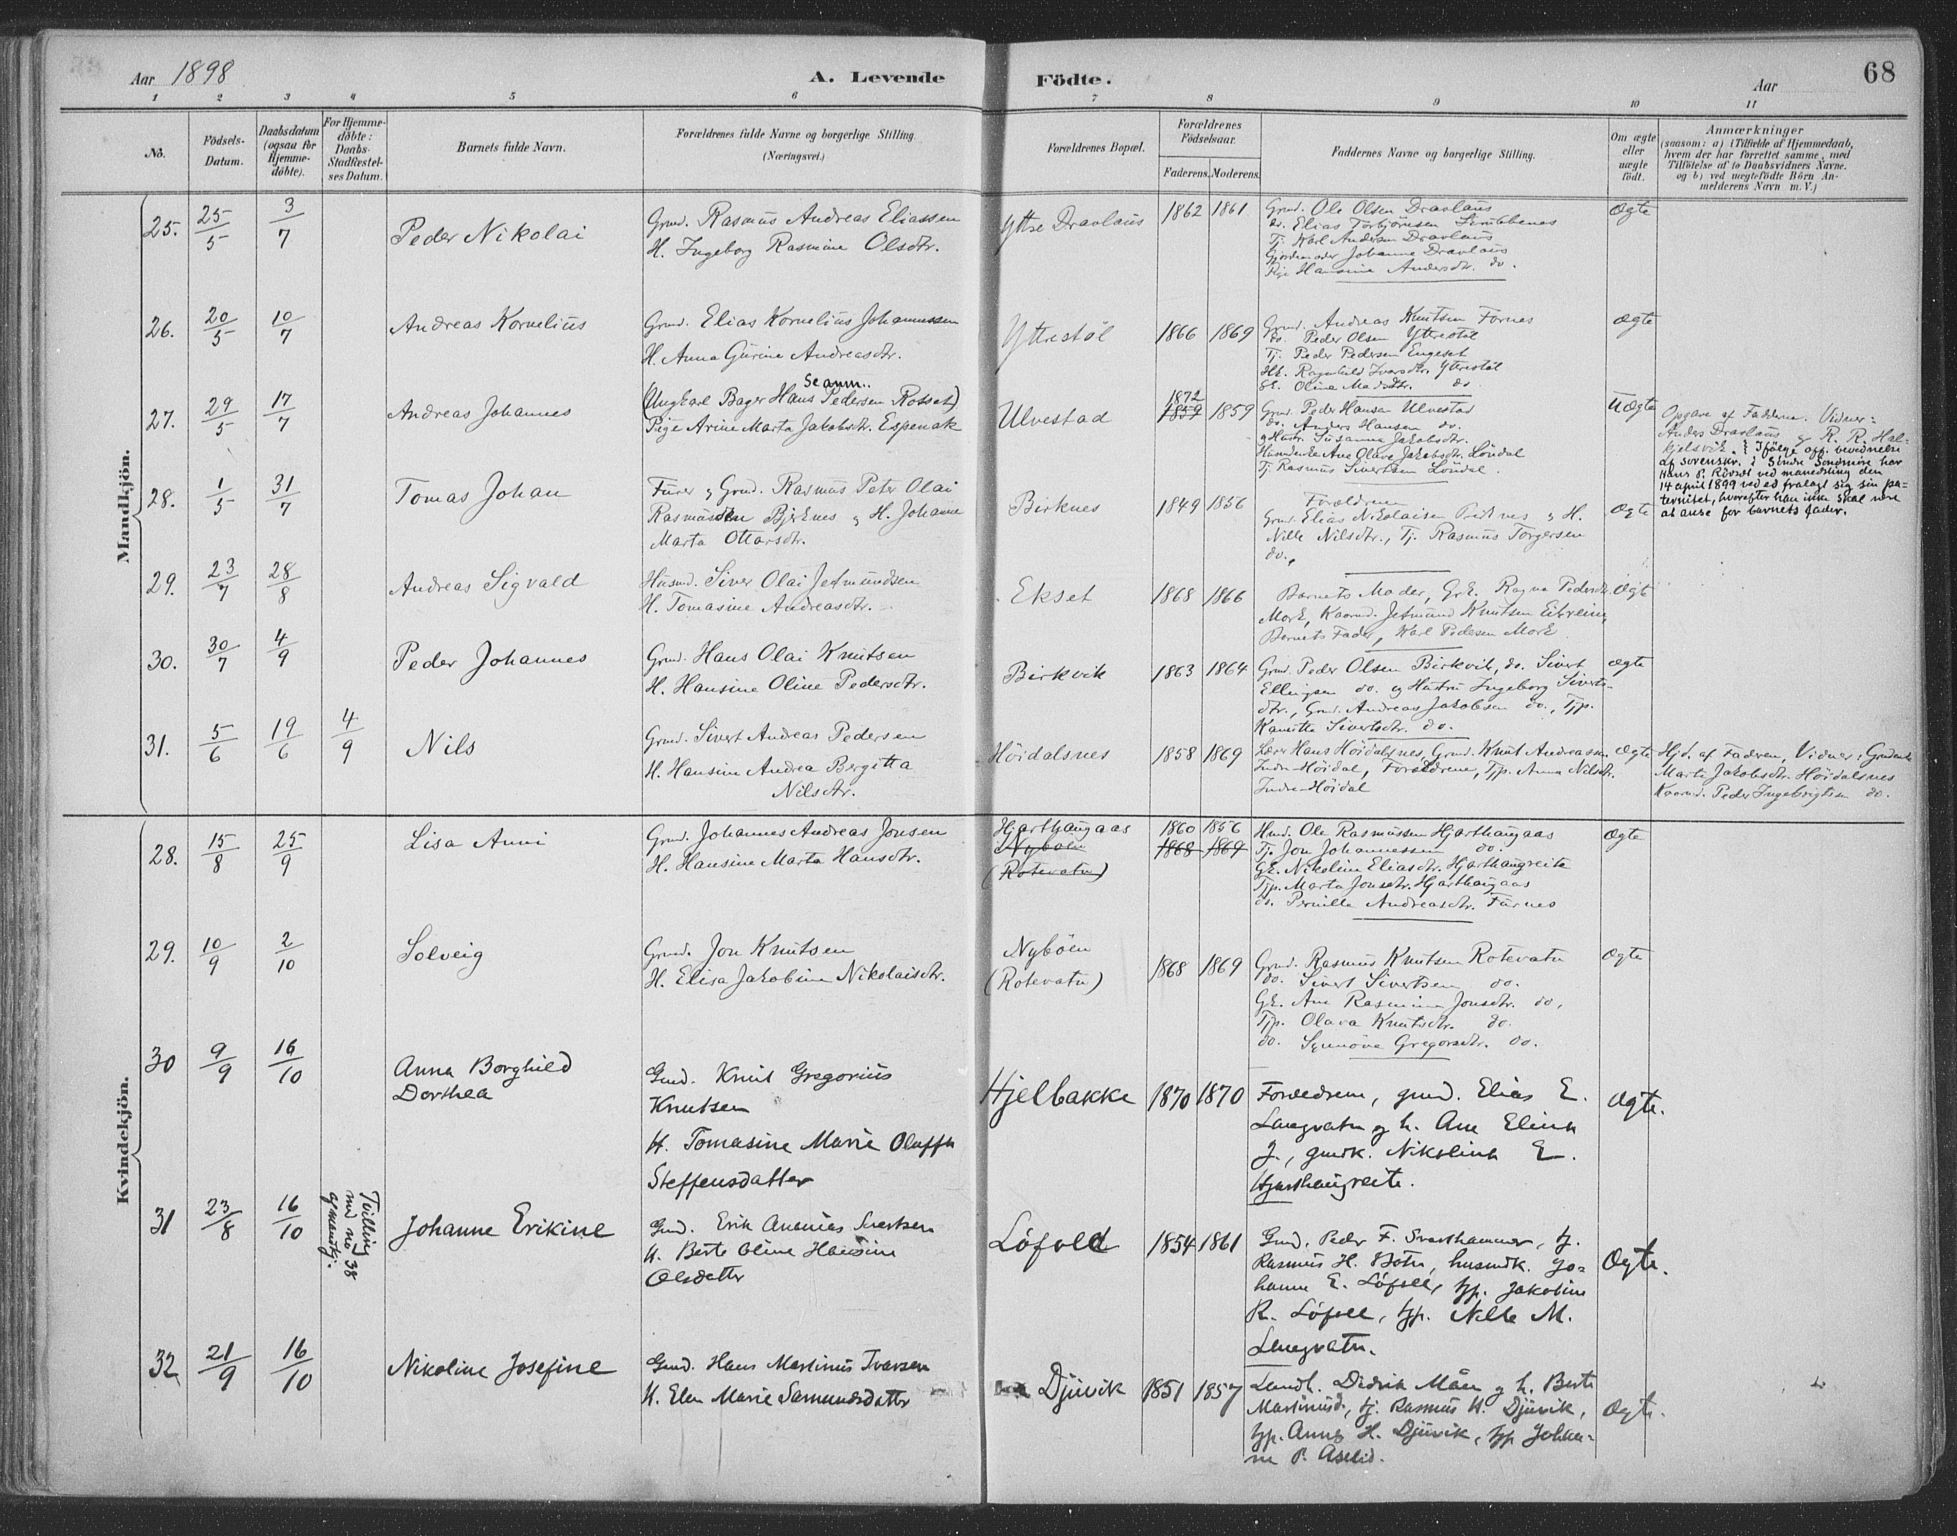 Aar 1898
A. Levende Födte.
Aar
68
1 2 3 4 5 6 7 8 9 10 11
No.
Födsels-Datum.
Daabsdatum (ogsaa for Hjemme-döbte).
For Hjemme-döbte: Daabs-Stadfæstel-ses Datum.
Barnets fulde Navn.
Forældrenes fulde Navne og borgerlige Stilling. (Næringsvei.)
Forældrenes Bopæl.
Forældrenes Födselsaar.
Faderens. Moderens.
Faddernes Navne og borgerlige Stilling.
Om ægte eller uægte födt.
Anmærkninger
(saasom: a) i Tilfælde af Hjemmedaab,
hvem der har forrettet samme, med
Tilföielse af to Daabsvidners Navne.
og b) ved uægtefödte Börn An-
melderens Navn m. V.)
Mandkjön.
25. 25/5 3/7 Peder Nikolai
Grmd. Rasmus Andreas Eliassen
H. Ingeborg Rasmine Olsdtr.
Yttre Dravlaus 1862 1861
Grmd. Ole Olsen Dravlaus
do. Elias Torbjörnsen
Tj. Karl Andersen Dravlaus
Gjordemoder Johanna Dravlaus
Pige Hansine Andersdtr. do.
Ægte
26. 20/5 10/7 Andreas Kornelius
Grmd. Elias Kornelius Johannessen
H. Anna Gurine Andreasdtr.
Yttrestöl 1866 1869
Grmd. Andreas Knutsen Fornes
do. Peder Olsen Yttrestöl
Tj. Peder Pedersen Engeset
Hk. Ragnhild Iversdtr. Yttrestöl
Gk. Oline Madsdtr. do
Ægte
27. 29/5 17/7 Andreas Johannes
(Ungkarl Bager Hans Pedersen Rotset)
Seamn..
Pige Arine Marta Jakobsdtr. Espenak
Ulvestad 1872 1859 1859
Grmd. Peder Hansen Ulvestad
do. Anders Hansen do.
og Hustr. Susanna Jakobsdtr.
Husmderke Ane Olave Jakobsdtr. Löndal
Tj. Rasmus Sivertsen Löndal.
Uægte
Opgave af Fadderne. Vidner:
Anders Dravlaus og R. R. Hal-
kjelsvik. Ifölge off. bevidnelse
af sorenskr. i Söndre Söndmöre har
Hans P. Rövset ved manedsting den
14 april 1899 ved ed fralagt sig sin pa-
ternitet, hvorefter han inke skal være
at anse for barnets fader.
28. 1/5 31/7 Tomas Johan
Furer og Grmd. Rasmus Peter Olai
Rasmussen Birknes og H. Johanne
Marta Ottarsdtr.
Birknes 1849 1856
Foreldrene
Grmd. Elias Nikolaisen Birknes og H.
Nille Nilsdtr., Tj. Rasmus Torgersen
do.,
Ægte
29. 23/7 28/8 Andreas Sigvald
Husmd. Siver Olai Jetmundsen
H. Tomasine Andreasdtr.
Ekset 1868 1866
Barnets Moder, Gk. Ragna Pedersdtr
Mork, Kaarmd. Jetmund Knutsen Eikrem,
Barnets Fader, Karl Pedersen Mork
Ægte
30. 30/7 4/9 Peder Johannes
Grmd. Hans Olai Knutsen
H. Hansine Oline Pedersdtr.
Birkvik 1863 1864
Grmd. Peder Olsen Birkvik, do. Sivert
Ellingsen do. og Hustru Ingeborg Siverts-
dtr., Grmd. Andreas Jakobsen do., Tjp.
Kanutte Sivertsdtr. do.
Ægte
31. 5/6 19/6 4/9 Nils
Grmd. Sivert Andreas Pedersen
H. Hansine Andrea Bergitta
Nilsdtr.
Höidalsnes 1858 1869
Lærer Hans Höidalsnes, Grmd. Knut Andreassen
Indre-Höidal, Foreldrene, Tjp. Anna Nilsdtr.
Indre-Höidal
Ægte
Hjd. af Fadren, Vidner: Grmdenke
Marte Jakobsdtr. Höidalsnes
Kaarmd. Peder Ingebrigtsen do.
Kvindekjön.
28. 15/8 25/9 Lisa Anni
Grmd. Johannes Andreas Jonsen
H. Hansine Marta Hansdtr.
Hjarthaugaas
Nyböen
(Rotevatn)
1860 1856
1868 1869
Hmd. Ole Rasmussen Hjarthaugaas
Tj. Jon Johannessen do.
Gk. Nikoline Eliasdtr. Hjarthaugreite
Tjp. Marta Jonsdtr. Hjarthaugaas
do. Pernille Andreasdtr. Furnes
Ægte
29. 10/9 2/10 Solveig
Grmd. Jon Knutsen
H. Elisa Jakobine Nikolaisdtr.
Nyböen
(Rotevatn)
1868 1869
Grmd. Rasmus Knutsen Rotevatn
do. Sivert Sivertsen do.
Gk. Ane Rasmine Jonsdtr. do.
Tjp. Olava Knutsdtr. do.
do. Synnöve Gregorsdtr. do.
Ægte
30 9/9 16/10 Anna Borghild
Dorthea
Gmd. Knut Gregorius
Knutsen
H. Tomasine Marie Oluffa
Steffensdatter
Hjelbakke 1870 1870
Foreldrene, gmd. Elias E.
Langvatn og h. Ane Elina
J., gmdk. Nikolina E.
Hjarthaugreite.
Ægte.
31 23/8 16/10
Tvilling
med no 38
af mandkj.
Johanne Erikine
Gmd. Erik Ananias Sivertsen
H. Berte Oline Hansine
Olsdatter
Löfold 1854 1861
Gmd. Peder F. Svarthammer, tj.
Rasmus H. Botn, husmdk. Jo-
hanne E. Löfoll, tjp. Jakobine
R. Löfoll, tjp. Nille M.
Langvatn.
Ægte.
32 21/9 16/10 Nikoline Josefine
Gmd. Hans Martinus Ivarsen
H. Elen Marie Samundsdatter
Djuvik 1851 1857
Landh. Didrik Mån og h. Berte
Martinusd., tj. Rasmus H. Djuvik,
tjp. Anna H. Djuvik, tjp Johan-
ne P. Aselid.
Ægte.